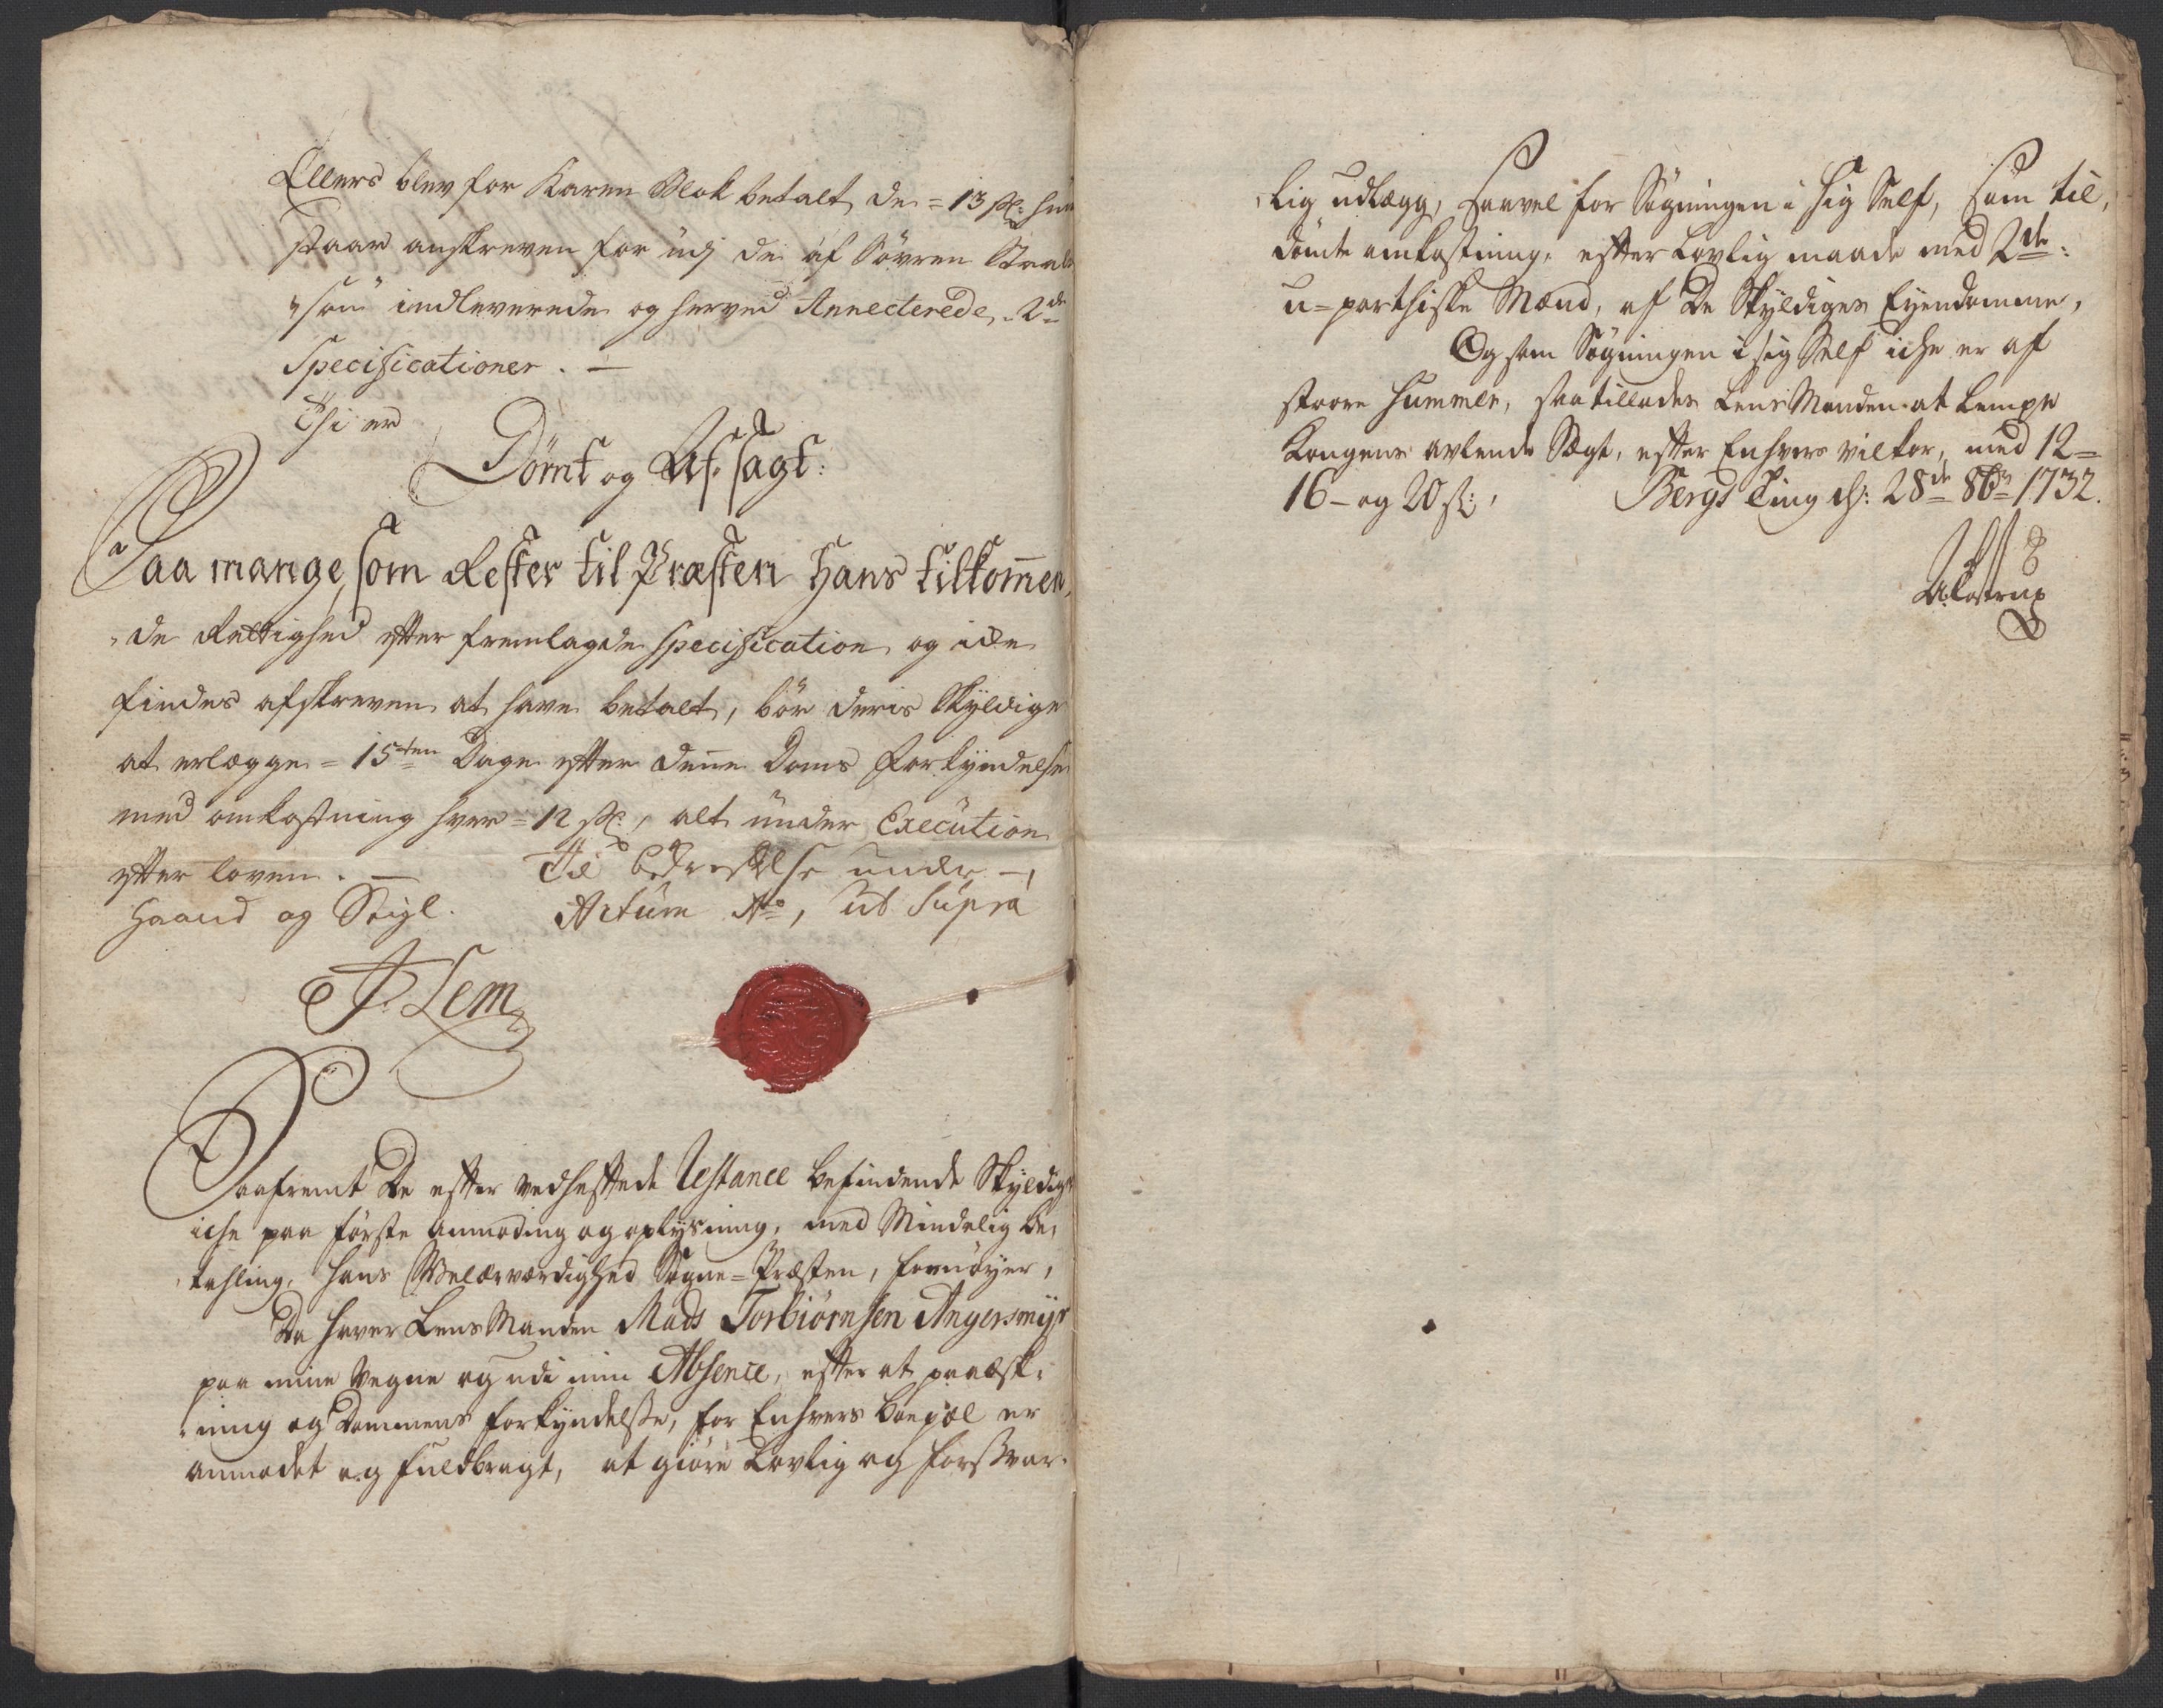 Ellers blev for Karen Blok betalt de = 13 sk: hun
staar anskreven for udj de af Sövren Strale
"sen indleverede og herved Annecterede 2de
Specificationer. —
Thi er
Dömt og Af-sagt:
Saa mange, som Rester til Præsten Hans tilkom̅en,
"de Rettighed efter fremlagde Specification og icke
findes afskreven at have betalt, bör deris Skyldige
at erlægge = 15ten Dage efter denne Doms Forkyndelse
med omkostning hver = 12 sk:, alt under Execution
efter loven. — Til bekreftelse under —,
Haand og Seigl. Actum Ao, ut Supra
A. Lem
Saafremt De efter vedheftede Restance befindende Skyldige
iche paa förste anmoding og oplysning, med Mindelig be,
tahling, Hans Welærværdighed Sogne-Præsten, fornöyer,
Da haver LensManden Mads Torbiörnsen Angersmyr
paa mine Vegne og udi min Absence, efter at paaæsk,
,ning og Dommens forkyndelsse, for Enhvers boepæl er
anmodet og fuldbragt, at giöre Lovlig og forsvar,
,lig udlægg, saavel for Sögningen i sig Self, som til,
dömte omkostning, efter Lovlig maade med 2de:
u-parthiske Mænd, af De Skyldiges Eyendomme,
Og som Sögningen i sig Self iche er af
stoore Summer, saa tillades LensManden at Lempe
Kongens Sægt, efter Enhvers vilkor, med 12 =
16 - og 20 sk:, Bergs Ting d: 28de 8br 1732.